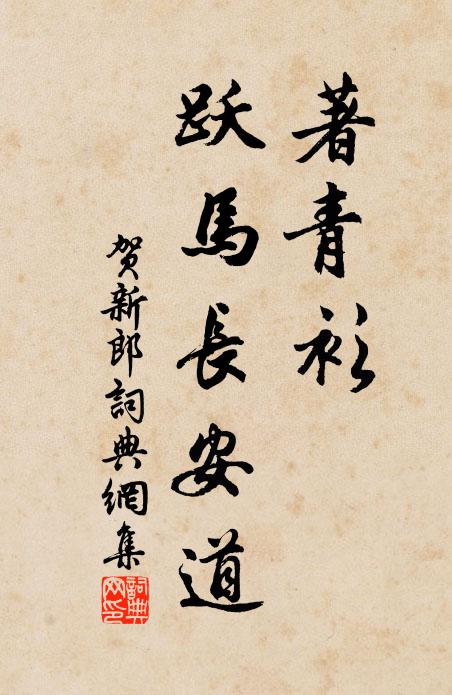 著青衫
跃馬長安道
贺新郎詞典網集
詞典网印